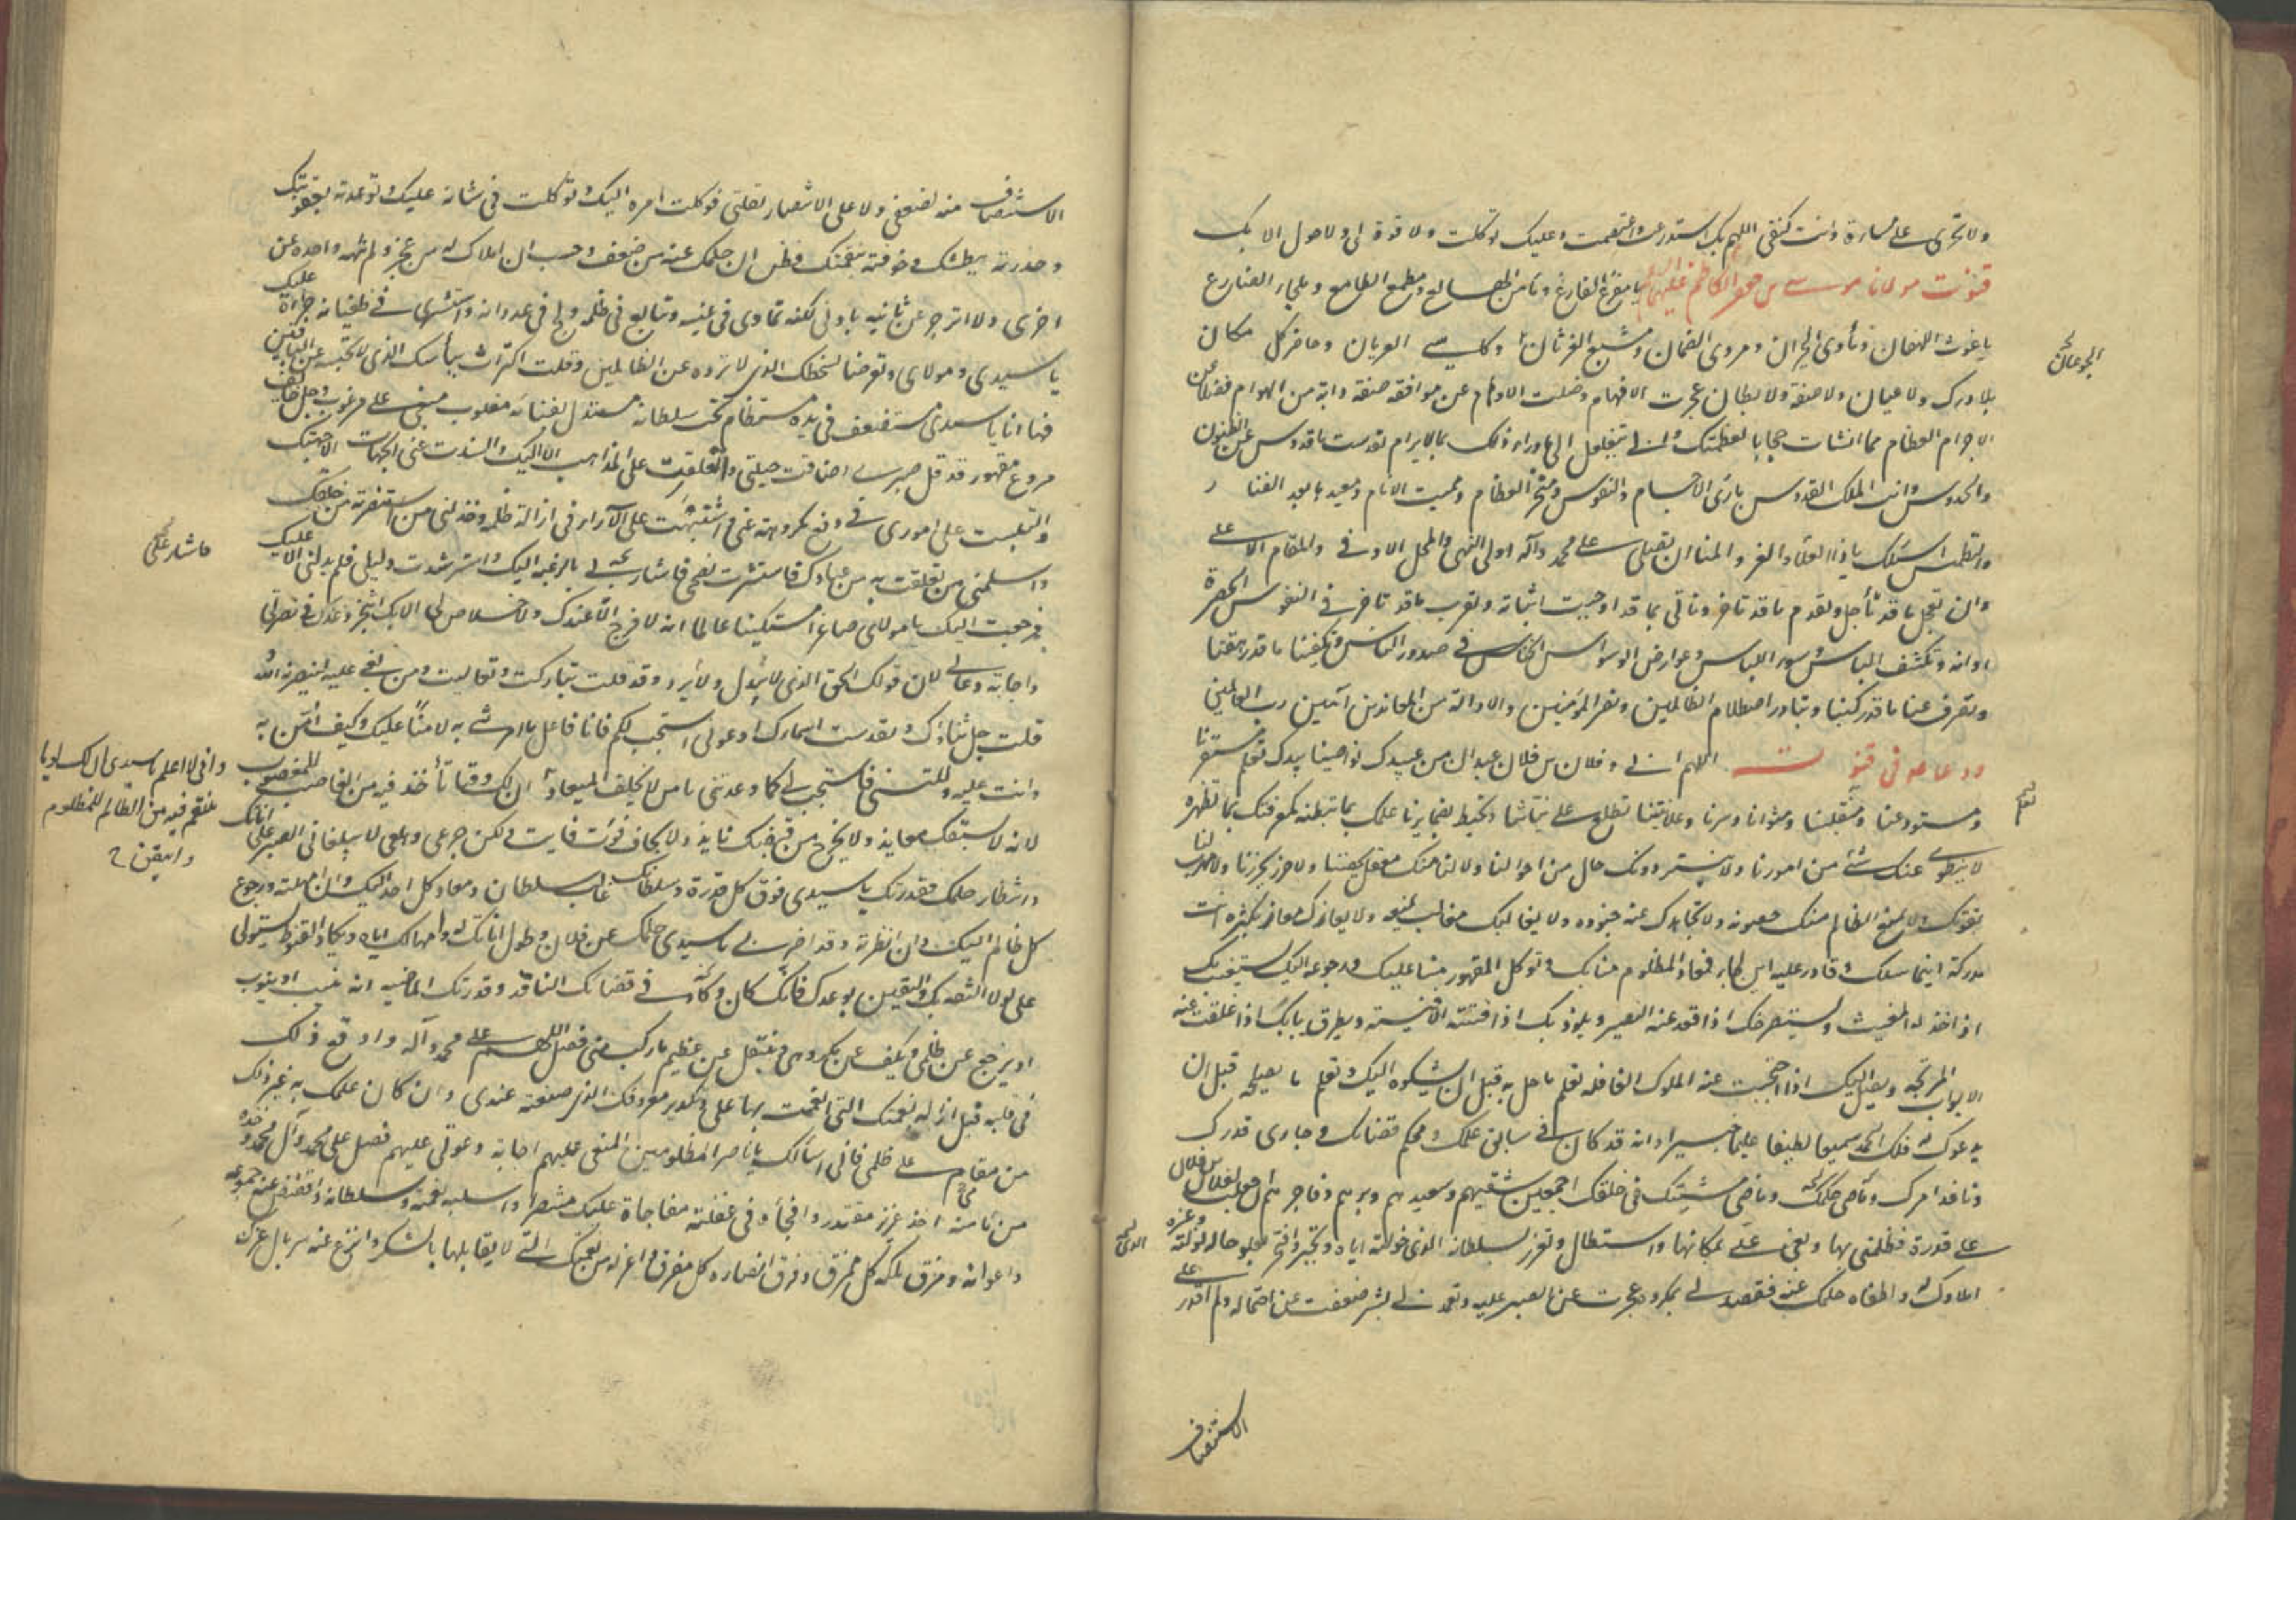 ولا تجرى على مساءة وانت كنفى اللهم بك استدرعت واعتصمت وعليك توكلت ولا قوة لى ولا حول الا بك
قنوت مولانا موسى بن جعفر الكاظم عليهما السلام يا مفزع الفازع ومأمن الهالع ومطمع الطامع وملجاء الضارع
يا غوث اللهفان ومأوى الحيران ومروى الظمان ومشبع الغرثان وكاسى العريان وحاضر كل مكان
الجوعان
بلا درك ولا عيان ولا صفة ولا بطان عجزت الافهام وضلت الاوهام عن موافقة صفة دابة من الهوام فضلا عن
الاجرام العظام مما انشات حجابا لعظمتك وانى يتغلغل الى ما وراء ذلك بما لا يرام تقدست يا قدوس عن الظنون
والحدوس وانت الملك القدوس بارئ الاجسام والنفوس ومنخر العظام ومميت الانام ومعيدها بعد الفناء
والتطمس اسئلك يا ذا العلاء والعز والثناء ان تصلى على محمد وآله اولى النهى والمحل الاوفى والمقام الاعلى
وان تعجل ما قد تأجل وتقدم ما قد تاخر وتاتى بما قد اوجبت اثباته وتقرب ما قد تاخر فى النفوس الحصرة
اوانه وتكشف الباس وسوء اللباس وعوارض الوسواس الخناس فى صدور الناس وتكفينا ما قد رهقنا
وتصرف عنا ما قد ركبنا وتبادر اصطلام الظالمين ونصر المؤمنين والادالة من المعاندين آمين رب العالمين
ودعا عه فى قنوت اللهم انى وفلان بن فلان عبدان من عبيدك نواصينا بيدك تعلم مستقرنا
تعلم
ومستودعنا ومنقلبنا ومثوانا وسرنا وعلانيتنا تطلع على نياتنا وتحيط بضمايرنا علمك بما نبطنه كمعرفتك بما نظهره
لا ينطوى عنك شئ من امورنا ولا يستتر دونك حال من احوالنا ولا لنا منك معقل يحصننا ولا حرز يحرزنا ولا مهرب لنا
نفوتك ولا يمنع الظالم منك حصونه ولا يجاهدك عنه جنوده ولا يغالبك مغالب بمنعة ولا يعازك معاز بكثرة انت
مدركه اينما سلك وقادر عليه اين لجاء فمعاذ المظلوم منا بك وتوكل المقهور منا عليك ورجوعه اليك يستغيث بك
اذا خذله المغيث ويستصرخك اذا قعد عنه النصير ويلوذ بك اذا نفته الافنية ويطرق بابك اذا غلقت عنه
الابواب المرتجة ويصل اليك اذا احتجبت عنه الملوك الغافلة تعلم ما حل به قبل ان يشكوه اليك وتعلم ما يصلحه قبل ان
يدعوك له فلك الحمد سميعا لطيفا عليما خبيرا وانه قد كان فى سابق علمك ومحكم قضائك وجارى قدرك
ونافذ امرك وماضى حكمك وماضى مشيتك فى خلقك اجمعين شقيهم وسعيدهم وبرهم وفاجرهم ان جعلت لفلان بن فلان
على قدرة فظلمنى بها وبغى على بمكانها واستطال وتعزز بسلطانه الذى خولته اياه وتجبر وافتخر بعلو حاله التى نولته وعزه
املاؤك له واطغاه حلمك عنه فقصدنى بمكروه عجزت عن الصبر عليه وتعمدنى بشر ضعفت عن احتماله ولم اقدر على
الاستنصاف
الاستنصاف منه لضعفى ولا على الانتصار لقلتى فوكلت امره اليك وتوكلت فى شانه عليك وتوعدته بعقوبتك
وحذرته ببطشك وخوفته بنقمتك فظن ان حلمك عنه من ضعف وحسب ان املاك له من عجز ولم تنهه واحدة عن
اخرى ولا انزجر عن ثانية باولى لكنه تمادى فى غيه وتتابع فى ظلمه ولج فى عدوانه واستشرى فى طغيانه جراة عليك
يا سيدى ومولاى وتعرضا لسخطك الذى لا ترده عن الظالمين وقلت اكتراث بباسك الذى لا تحبسه عن الباغين
فها انا يا سيدى مستضعف فى يده مستضام تحت سلطانه مستذل بفنائه مغلوب مبغى على مرغوب وجل خائف
مروع مقهور قد قل صبرى وضاقت حيلتى وانغلقت على المذاهب الا اليك وانسدت عنى الجهات الا جهتك
والتبست على امورى فى دفع مكروهه عنى واشتبهت على الآراء فى ازالة ظلمه وخذلنى من استنصرته من خلقك
واسلمنى من تعلقت به من عبادك فاستشرت نصيحى فاشار على بالرغبة اليك واسترشدت دليلى فلم يدلنى الا عليك
فاشار على
فرجعت اليك يا مولاى صاغرا مستكينا عالما انه لا فرج الا عندك ولا خلاص لى الا بك انتجز وعدك فى نصرتى
واجابة دعائى لان قولك الحق الذى لا يبدل ولا يرد وقد قلت تباركت وتعاليت ومن بغى عليه لينصرنه الله
قلت جل ثناؤك وتقدست اسماؤك ادعونى استجب لكم فانا فاعل ما امرتنى به لا منا عليك وكيف امتن به
وانت عليه دللتنى فاستجب لى كما وعدتنى يا من لا يخلف الميعاد ان لك وقتا تأخذ فيه من الغاصب للمغصوب
وانى لاعلم يا سيدى ان لك يوما
تنتقم فيه من الظالم للمظلوم
وايقن
لانه لا يسبقك معاند ولا يخرج من قبضتك نابذ ولا يخاف فوت فايت ولكن جزعى وهلعى لا يبلغان الصبر على اناتك
وانتظار حلمك فقدرتك يا سيدى فوق كل قدرة وسلطانك غالب كل سلطان ومعاد كل احد اليك وان امهلته ورجوع
كل ظالم اليك وان انظرته وقد اضرنى يا سيدى حلمك عن فلان وطول اناتك له وامهالك اياه ويكاد القنوط يستولى
على لولا الثقة بك واليقين بوعدك فان كان فى قضائك النافذ وقدرتك الماضية انه ينيب او يتوب
او يرجع عن ظلمى ويكف عن مكروهى وينتقل عن عظيم ما ركب منى فصل اللهم على محمد وآله واوقع ذلك
فى قلبه قبل ازاله نعمتك التى انعمت بها على وتكدير معروفك الذى صنعته عندى وان كان علمك به غير ذلك
من مقامه على ظلمى فانى اسألك يا ناصر المظلومين المبغى عليهم اجابة دعوتى عليهم فصل على محمد وآل محمد وخذه
من مامنه اخذ عزيز مقتدر وافجأه فى غفلته مفاجاة مليك منتصر واسلبه نعمته وسلطانه وافضض عنه جموعه
واعوانه ومزق ملكه كل ممزق وفرق انصاره كل مفرق واعزله من نعمتك التى لا يقابلها بالشكر وانزع عنه سربال عزك